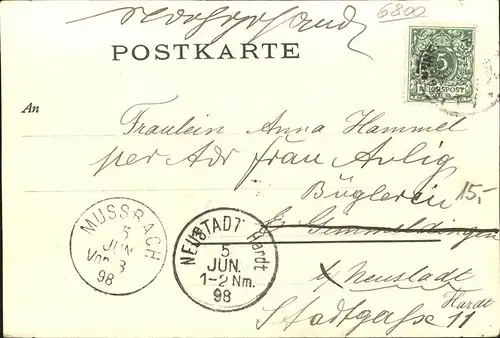 6800
POSTKARTE
5
REICHSPOST
An
Fräulein Anna Hammel
per Adr Frau Aulig
Büglerin
15,-
Gimmeldingen
b/ Neustadt
Hardt
Stadtgasse 11
MUSSBACH
5
JUN
Vor. 8
98
NEUSTADT Hardt
5
JUN.
1-2 Nm.
98